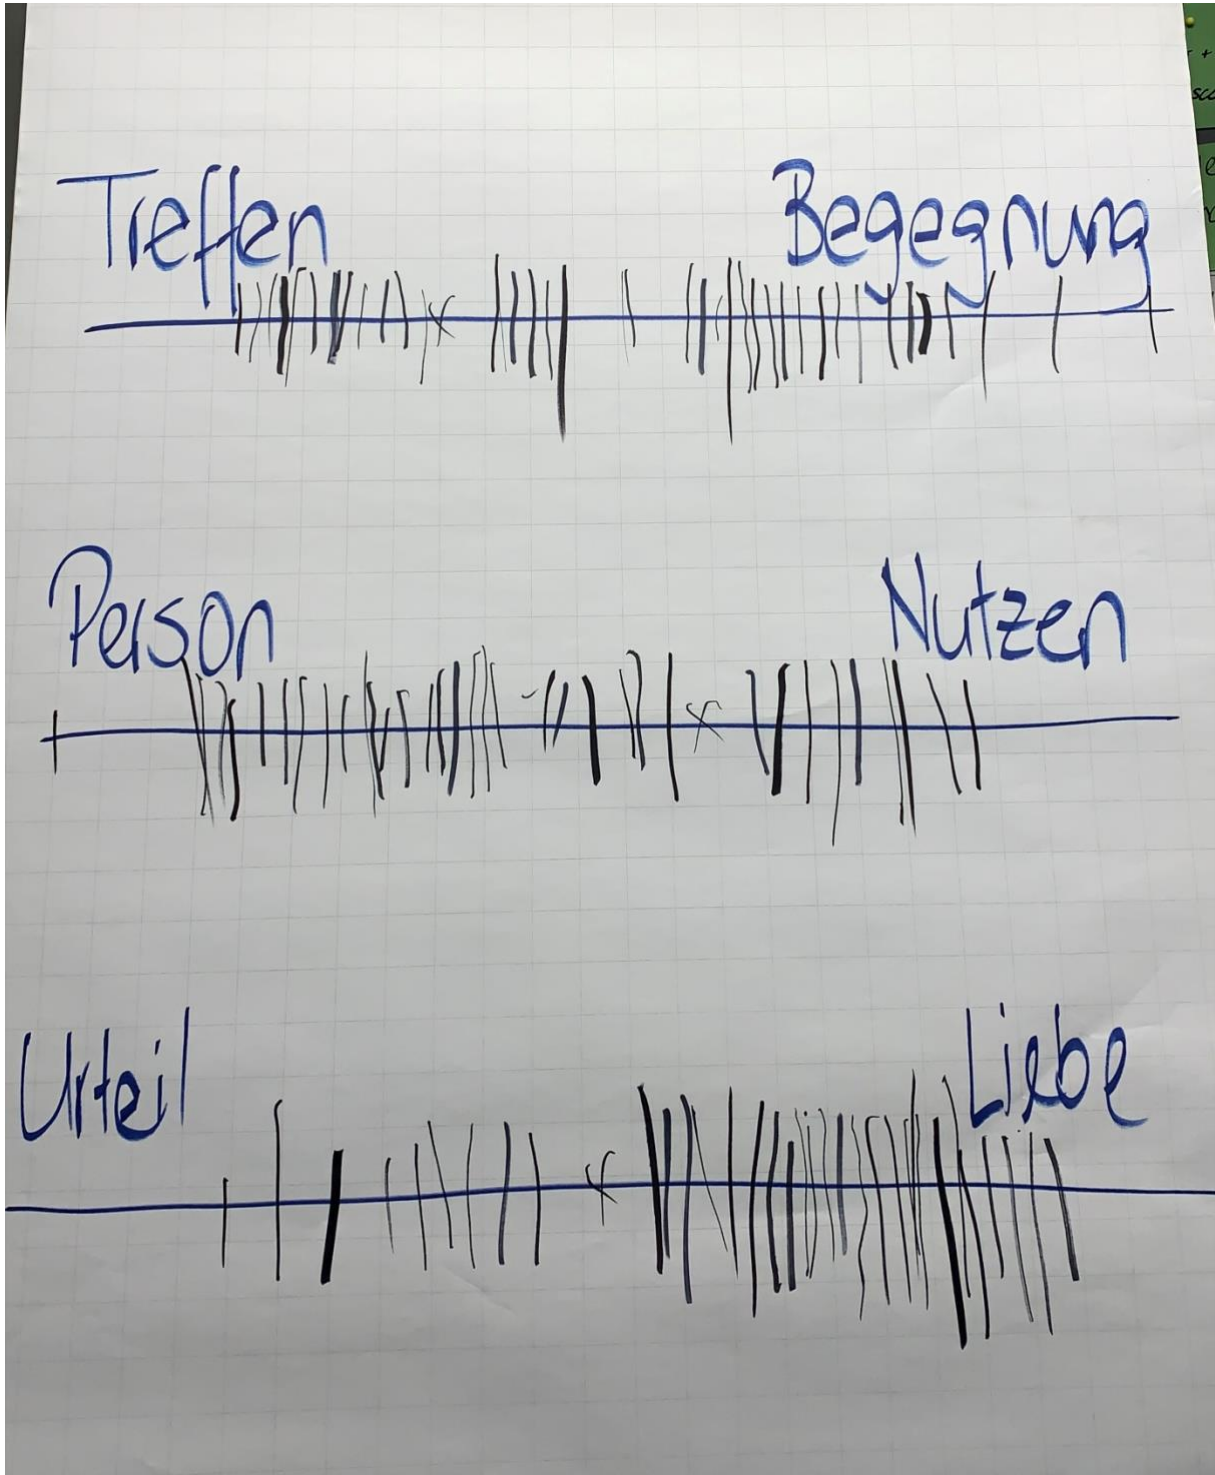 Treffen Begegnung
Person Nutzen
Urteil Liebe